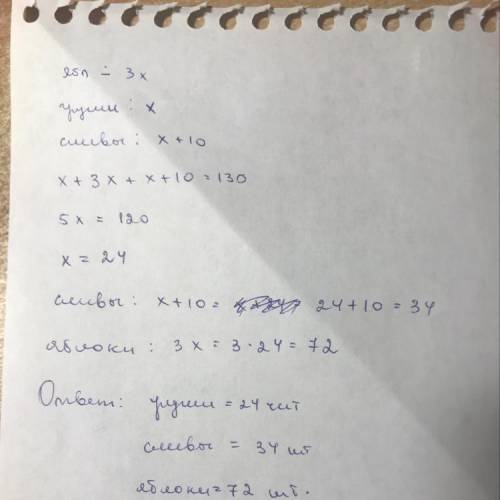 ябл - 3x
груши: x
сливы: x+10
x+3x+x+10=130
5x = 120
x = 24
сливы: x+10 = 24+10 = 34
яблоки: 3x = 3·24 = 72
Ответ: груши = 24 шт
сливы = 34 шт
яблоки = 72 шт.